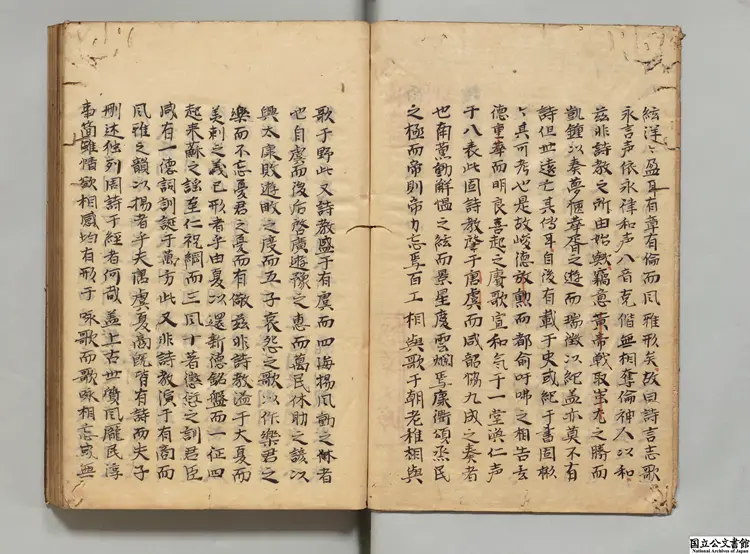 絃洋〻盈耳有章有倫而風雅形矣故曰詩言志歌
永言声依永律和声八音克偕無相奪倫神人以和
玆非詩教之所由始欤竊意黄帝戦取蚩尤之勝而
凱鍾以奏夢偃華胥之遊而瑞徴以紀盖亦莫不有
詩但世遠亡其傳耳自後有載于史或紀于書固彬
〻其可考也是故峻德放勲而都俞吁咈之相告去
德重華而明良喜起之賡歌宣和気于一堂洪仁声
于八表此固詩教肇于唐虞而咸韶偹九成之奏者
也南薫動解愠之絃而景星慶雲爛焉康衢頌烝民
之極而帝則帝力忘焉百工相與歌于朝老稚相與
歌于野此又詩教盛于有虞而四海揚風動之休者
也自虞而後后啓廣遊豫之恵而萬民休助之諺以
興太康敗遊畋之度而五子哀怨之歌以作樂君之
樂而不忘憂君之憂而有儆玆非詩教溢于大夏而
美刺之義已形者乎由夏以還新德銘盤而一征四
起来蘇之謡至仁祝網而三風十著懲愆之訓君臣
咸有一德詞訓誕于萬方此又非詩教演于有商而
風雅之韻以揚者乎夫唐虞夏商既皆有詩而夫子
刪述独列周詩于經者何哉盖上古世質風龎民淳
事簡雖情欲相感均有形于咏歌而歌咏相忘咸無
国立公文書館
National Archives of Japan